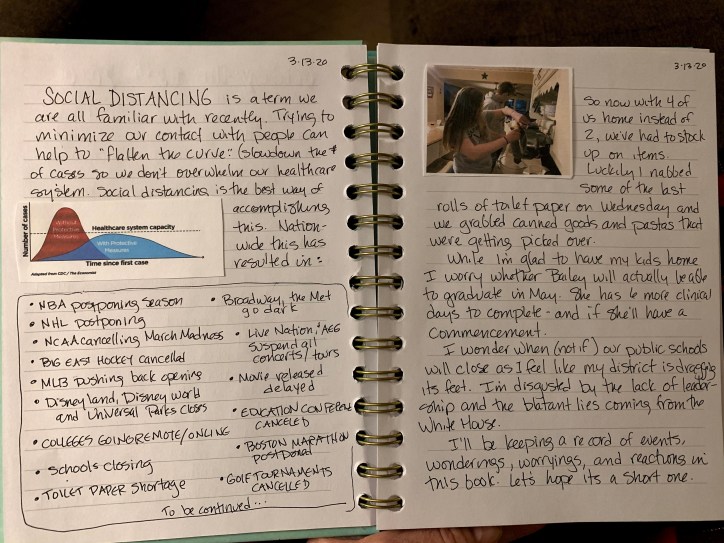 3.13.20
SOCIAL DISTANCING is a term we
are all familiar with recently. Trying to
minimize our contact with people can
help to "flatten the curve": (slowdown the #
of cases so we don't overwhelm our healthcare
system. Social distancing is the best way of
accomplishing
this. Nation-
wide this has
resulted in:
Number of cases
Without
Protective
Measures
Healthcare system capacity
With Protective
Measures
Time since first case
Adapted from CDC / The Economist
• NBA postponing season
• NHL postponing
• NCAA cancelling March Madness
• BIG EAST Hockey cancelled
• MLB pushing back opening
• Disneyland, Disney world
and Universal Parks closing
• COLLEGES GOING REMOTE/ONLINE
• Schools closing
• TOILET PAPER Shortage
• Broadway, the Met
go dark
• Live Nation, AEG
suspend all
concerts/tours
• Movie released
delayed
• EDUCATION CONFERENCE
CANCELED
• BOSTON MARATHON
postponed
• GOLF TOURNAMENTS
CANCELLED
To be continued...
3.13.20
So now with 4 of
us home instead of
2, we've had to stock
up on items.
Luckily I nabbed
some of the last
rolls of toilet paper on Wednesday and
we grabbed canned goods and pastas that
were getting picked over.
While I'm glad to have my kids home
I worry whether Bailey will actually be able
to graduate in May. She has 6 more clinical
days to complete - and if she'll have a
Commencement.
I wonder when (not if) our public schools
will close as I feel like my district is dragging
its feet. I'm disgusted by the lack of leader-
ship and the blatant lies coming from the
White House.
I'll be keeping a record of events,
wonderings, worryings, and reactions in
this book. Let's hope its a short one.